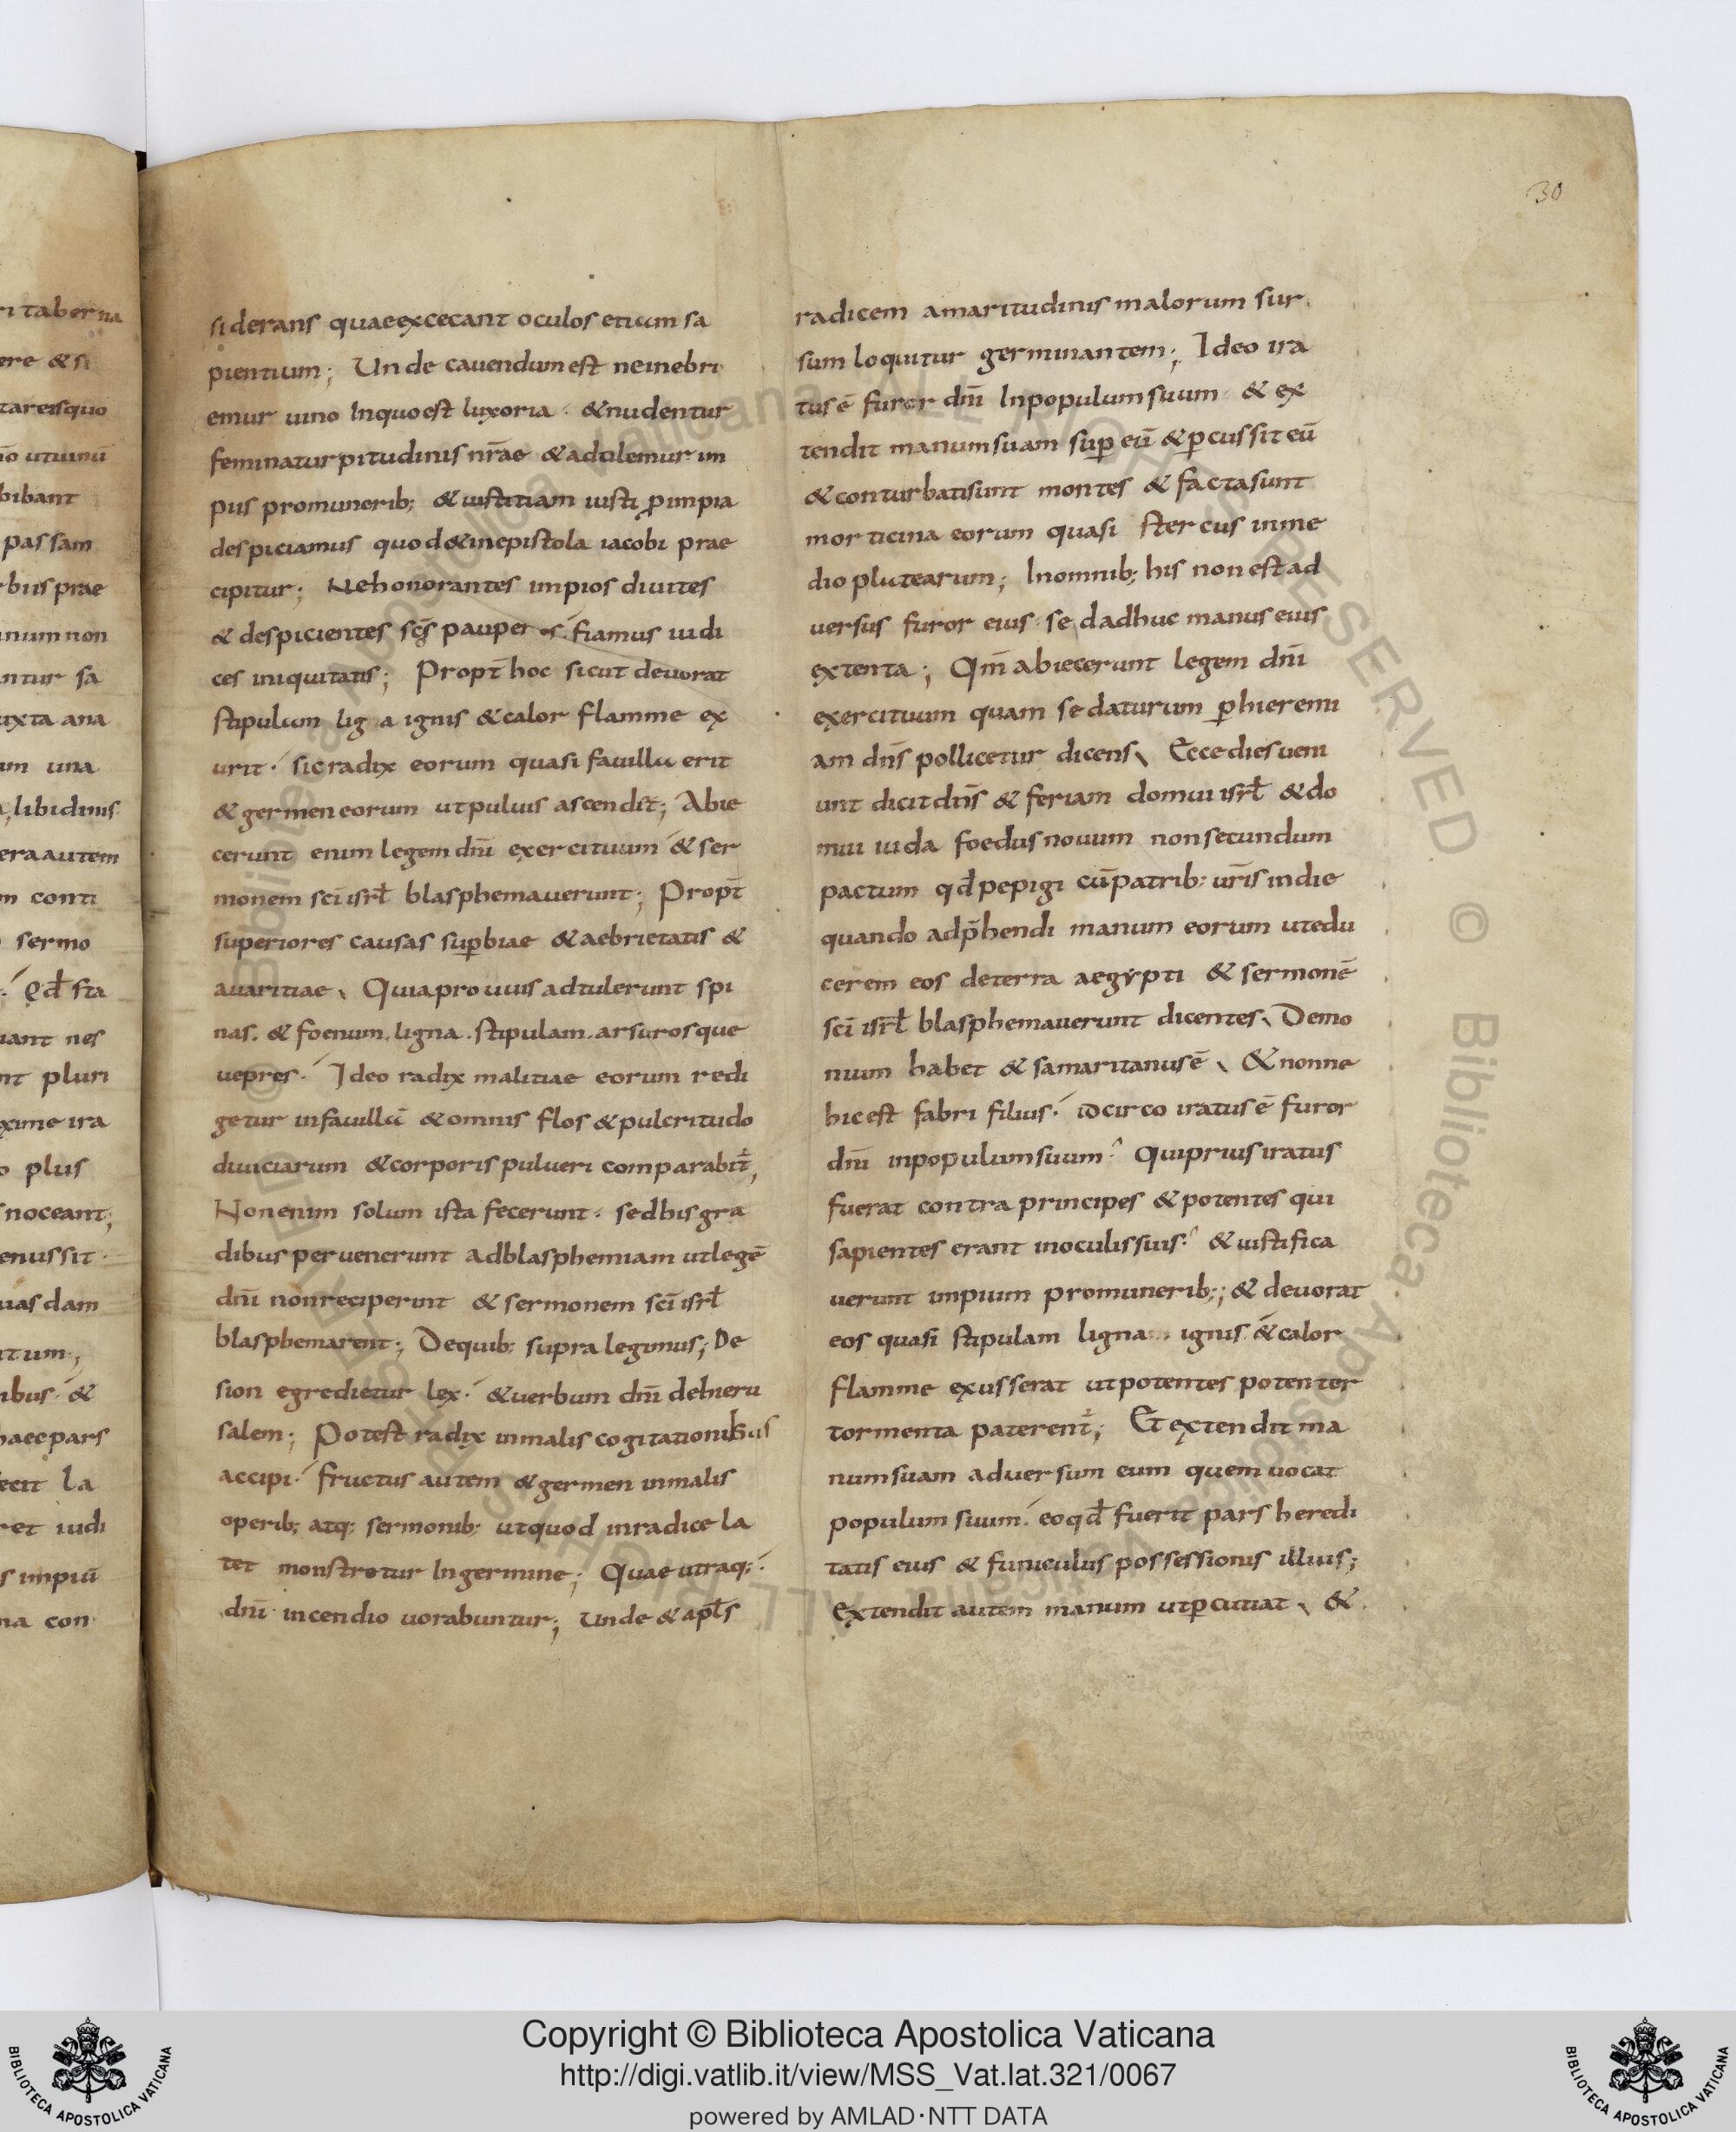 30
siderans quae excecant oculos etiam sa
pientium; Unde cauendum est ne inebri
emur uino In quo est luxoria · & nudentur
femina turpitudinis nr̄ae & adtilemur im
pus pro munerib; & iustitiam iusti ꝓ impia
despiciamus quod & in epistola iacobi prae
cipitur; Ne honorantes impios diuites
& despicientes sc̄s pauperes · fiamus iudi
ces iniquitatis; Propt̄ hoc sicut deuorat
stipulam lig a ignis & calor flamme ex
urit · sic radix eorum quasi fauilla erit
& germen eorum ut puluis ascendit; Abie
cerunt enim legem dn̄i exercituum & ser
monem sc̄i isrl̄ blasphemauerunt; Propt̄
superiores causas suꝑbiae & aebrietatis &
auaritiae, Quia pro uuis adtulerunt spi
nas. & foenum. ligna. stipulam. arsurosque
uepres · Ideo radix malitiae eorum redi
getur in fauillā & omnis flos & pulcritudo
diuiciarum & corporis pulueri comparabit̄;
Non enim solum ista fecerunt · sed his gra
dibus peruenerunt ad blasphemiam ut legē
dn̄i non reciperint & sermonem sc̄i isrl̄
blasphemarent; De quib; supra legimus; De
sion egredietur lex · & uerbum dn̄i de hieru
salem; Potest radix in malis cogitationibus
accipi · fructus autem & germen in malis
operib; atq; sermonib; ut quod in radice la
tet monstretur In germine; Quae utraq; ·
dn̄i incendio uorabuntur; Unde & apl̄s
radicem amaritudinis malorum sur
sum loquitur germinantem; Ideo ira
tus ē furor dn̄i In populum suum · & ex
tendit manum suam suꝑ eū & ꝑcussit eū
& conturbati sunt montes & facta sunt
morticina eorum quasi stercus in me
dio plutearum; In omnib; his non est ad
uersus furor eius · sed adhuc manus eius
extenta; Qm̄ abiecerunt legem dn̄i
exercituum quam se daturum ꝑ hieremi
am dn̄s pollicetur dicens, Ecce dies ueni
unt dicit dn̄s & feriam domui isrl̄ & do
mui iuda foedus nouum non secundum
pactum qd̄ pepigi cū patrib; ur̄is in die
quando adp̄hendi manum eorum ut edu
cerem eos de terra aegypti & sermonē
sc̄i isrl̄ blasphemauerunt dicentes, Demo
nium habet & samaritanus ē, & nonne
hic est fabri filius · idcirco iratus ē furor
dn̄i in populum suum · Qui prius iratus
fuerat contra principes & potentes qui
sapientes erant in oculis suis · & iustifica
uerunt impium pro munerib;; & deuorat
eos quasi stipulam ligna ignis & calor
flamme exusserat ut potentes potenter
tormenta paterent̄; Et extendit ma
num suam aduersum eum quem uocat
populum suum · eo qd̄ fuerit pars heredi
tatis eius & funiculus possessionis illius;
Extendit autem manum ut ꝑcutiat, &
Copyright © Biblioteca Apostolica Vaticana
http://digi.vatlib.it/view/MSS_Vat.lat.321/0067
powered by AMLAD·NTT DATA
BIBLIOTECA APOSTOLICA VATICANA
BIBLIOTECA APOSTOLICA VATICANA